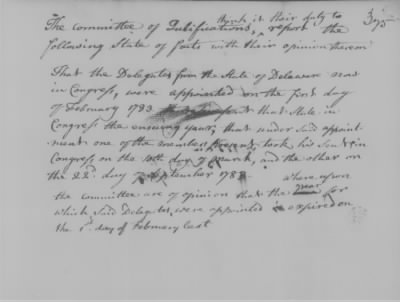 think it their duty to
375
The committee of Qualifications, report the
following State of facts with their opinion thereon
That the Delegates from the State of Delaware now
in Congress, were appointed on the first day
of February 1783 to represent that State in
Congress the ensuing year; that under said appoint-
ment one of the members present, took his Seat in
Congress on the day of March, and the other on
the 22d. day of September 1783. whereupon
the committee are of opinion that the year for
which said Delegates were appointed expired on
the 1st. day of February last